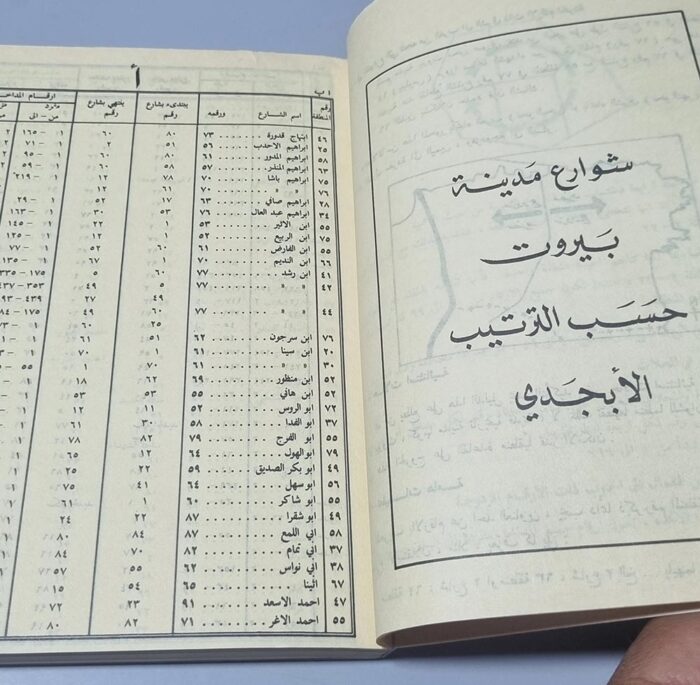 شوارع مَدينة
بَيروت
حسَب الترتيب
الأبجَدي
أ
ا ب
رقم المنطقة اسم الشارع ورقمه يبتدىء بشارع رقم ينتهي بشارع رقم ارقام المداخل
مفرد
من - الى
٤٦ ابتهاج قدورة ٧٣ ٨٠ ٦٠ ١ - ١٦٥
٢٥ ابراهيم الاحدب ٥٦ ٥١ ٢ ١ - ٧١
٥٨ ابراهيم المدور ٦١ ٨٠ ٦٠ ١ - ٩٥
٦٣ ابراهيم المنذر ٥٧ ٥٨ ٢ ١ - ٥٩
٧٥ ابراهيم باشا ٧٠ ٧٨ ١٢ ١ - ٢١٩
٧٦ » » ٧٠ ٦١ ١٢
٢٨ ابراهيم صافي ٦٣ ١٧ ٥٢ ١ - ٢٩
٣٤ ابراهيم عبد العال ٧٦ ٥٣ ٣٠ ١ - ١٦٣
٥٥ ابن الاثير ٥٣ ٢٢ ١ - ١٤٥
٧٥ ابن الربيع ٥٢ ١ ١٢ ١ - ١٢٥
٥٥ ابن الفارض ٦١ ٦٠ ٥٢ ١ - ٧٧
٦٦ ابن النديم ٧٠ ١ ٦٧ ١ - ١٣٥
٤١ ابن رشد ٧٧ ٤٩ ٥ ١٧٥ - ٣٣٥
٤٢ » » ٧٧ ٤٩ ٣٥٣ - ٤٣٧
٤٩ ٢٧ ٤٣٩
٤٤ » » ٧٧ ٦٠ ٤٩ ١٧٥
٢٥ ٦٠ ١
٧٦ ابن سرجون ٦٢ ٥١ ٦١ ١
٢٠ ابن سينا ٦١ ١ ٧٠ ١
٣٠ » » ٧٠ ١
٥٢ ابن منظور ٦٩ ٦٢ ١٨ ١
٥٢ ابن هاني ٥٢ ٥٣ ٥٣ ١
٧٢ ابو الروس ٥٢ ١١ ١٢ ١
٣٧ ابو الفدا ٥٨ ٣٠ ٦١ ١
٥٥ ابو الفرج ٧٩ ٨٢ ٧٨ ١
٧٩ ابو الهول ٦٤ ١٢ ٢٢ ١
٤٩ ابو بكر الصديق ٥٩ ٢٢ ٢٥ ١
٥٦ ابو سهل ٦٤ ٤١ ٧٥ ١
٥٥ ابو شاكر ٦٠ ١ ٦١ ١
٤٩ ابو شقرا ٨٧ ٢٢ ٢٤ ١
٥٨ ابي اللمع ٨٧ ٨٤ ٨٠ ١
٣٧ ابي تمام ٨٢ ٧٠ ٨٤ ١
٣٧ ابي نواس ٦٢ ٥٥ ٥٧ ١
٦٧ اثينا ٦٥ ٥٤ ١٥
٤٧ احمد الاسعد ٩١ ٢٣ ٧٢
٥٥ احمد الاغر ٧١ ٨٢ ٨٠